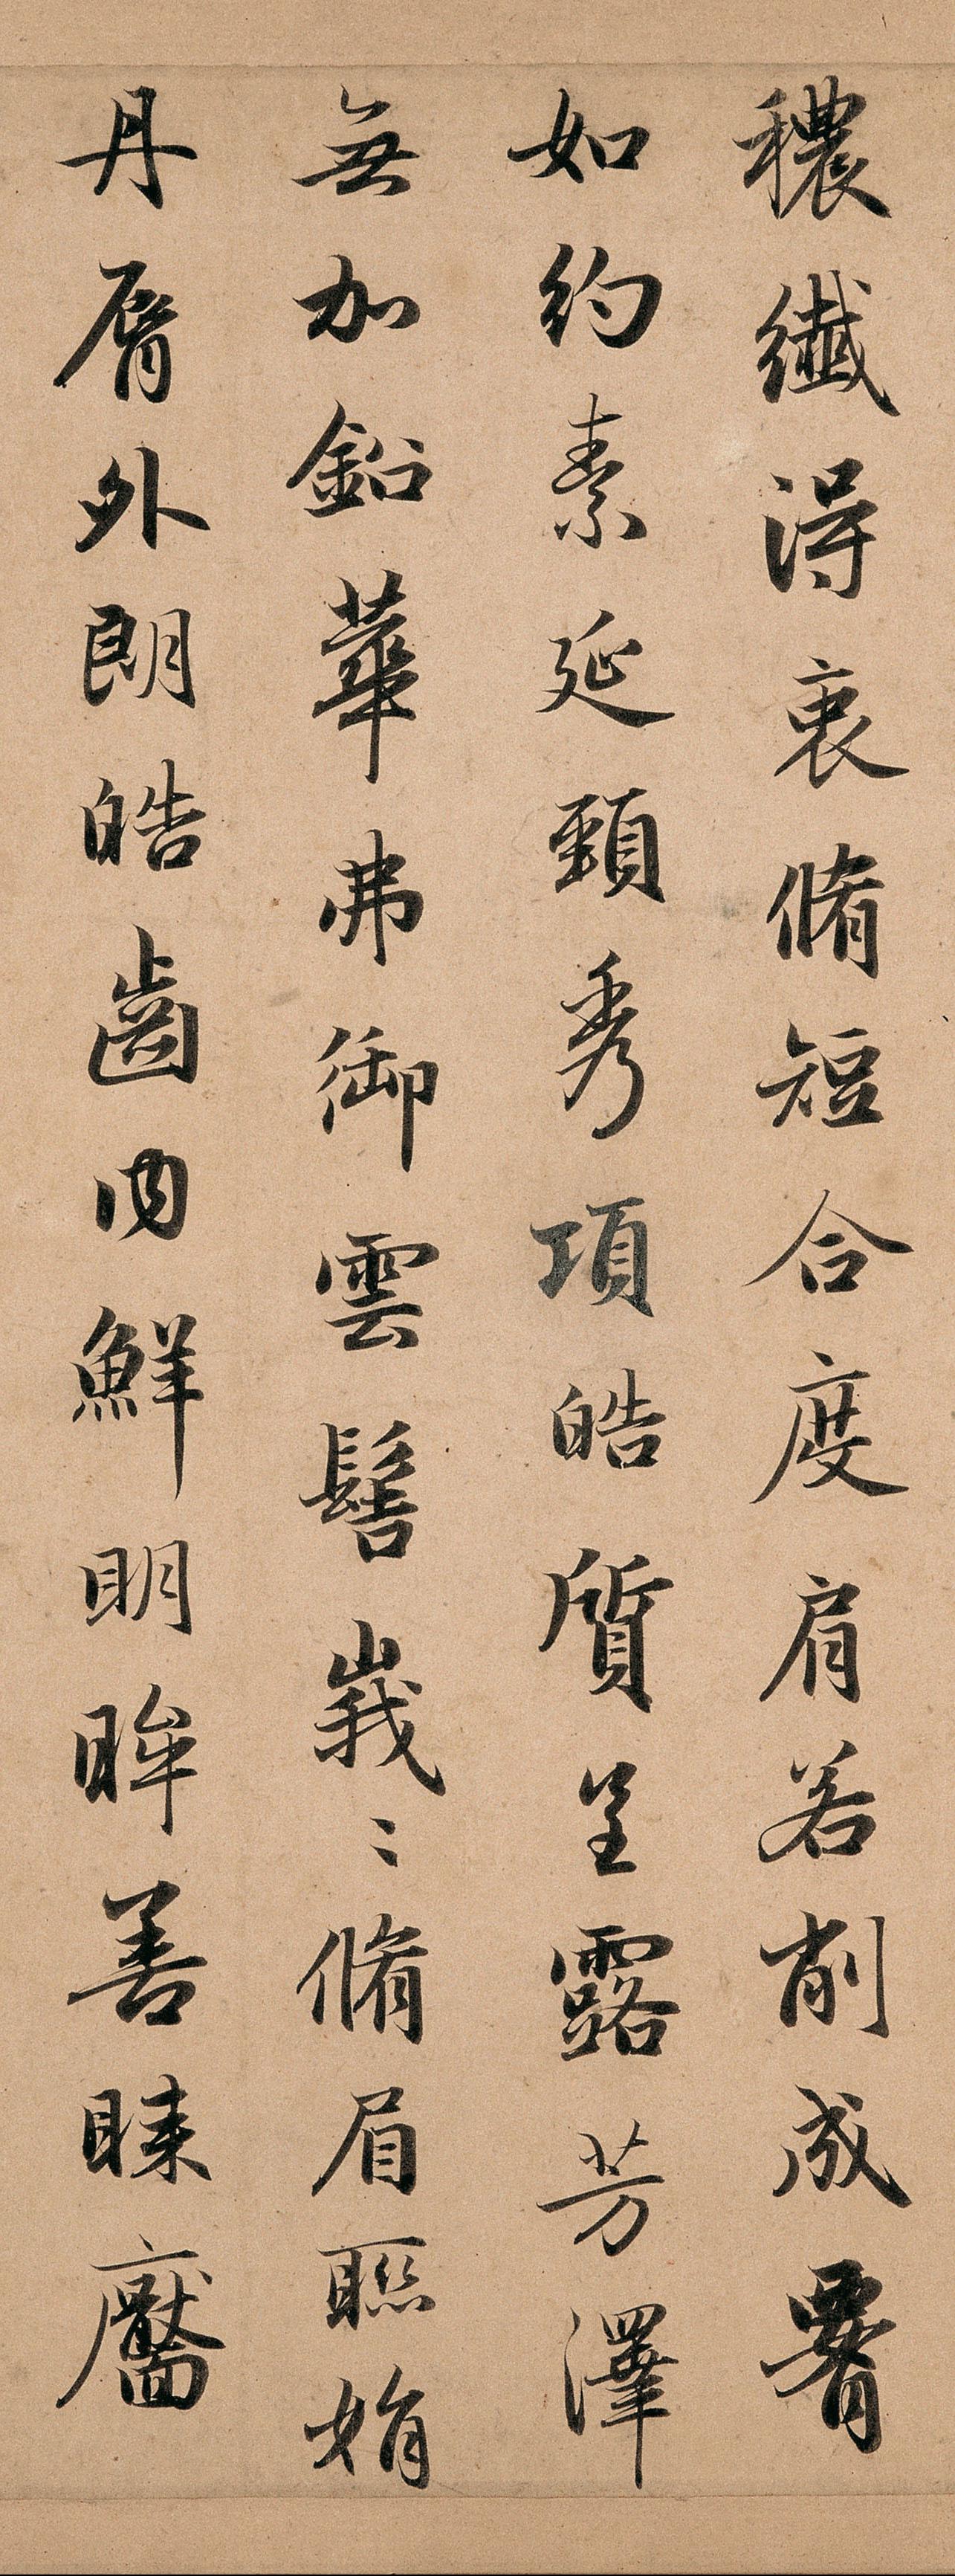 穠纖得衷脩短合度肩若削成䙅
如約素延頸秀項皓質呈露芳澤
無加鉛華弗御雲髻峩〻脩眉聮娟
丹脣外朗皓齒内鮮明眸善睞靨